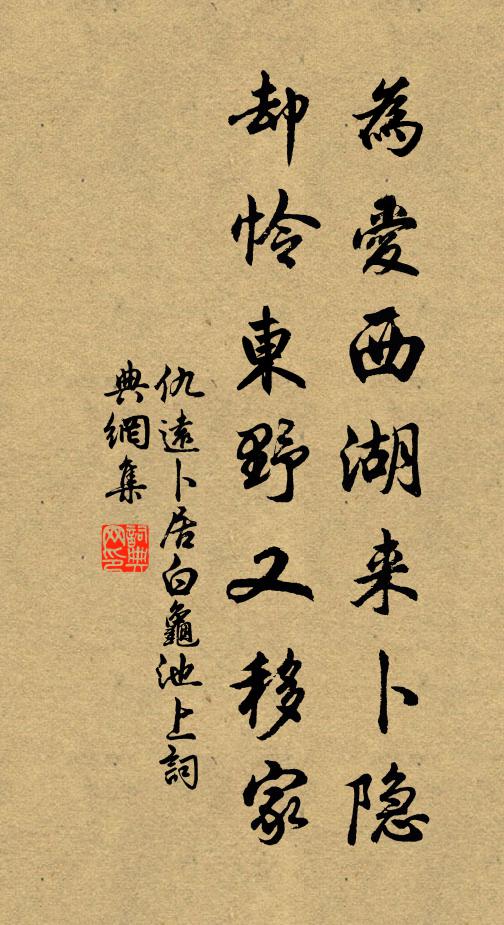 為愛西湖来卜隐
却怜東野又移家
仇遠卜居白龜池上詞
典網集
詞典网印